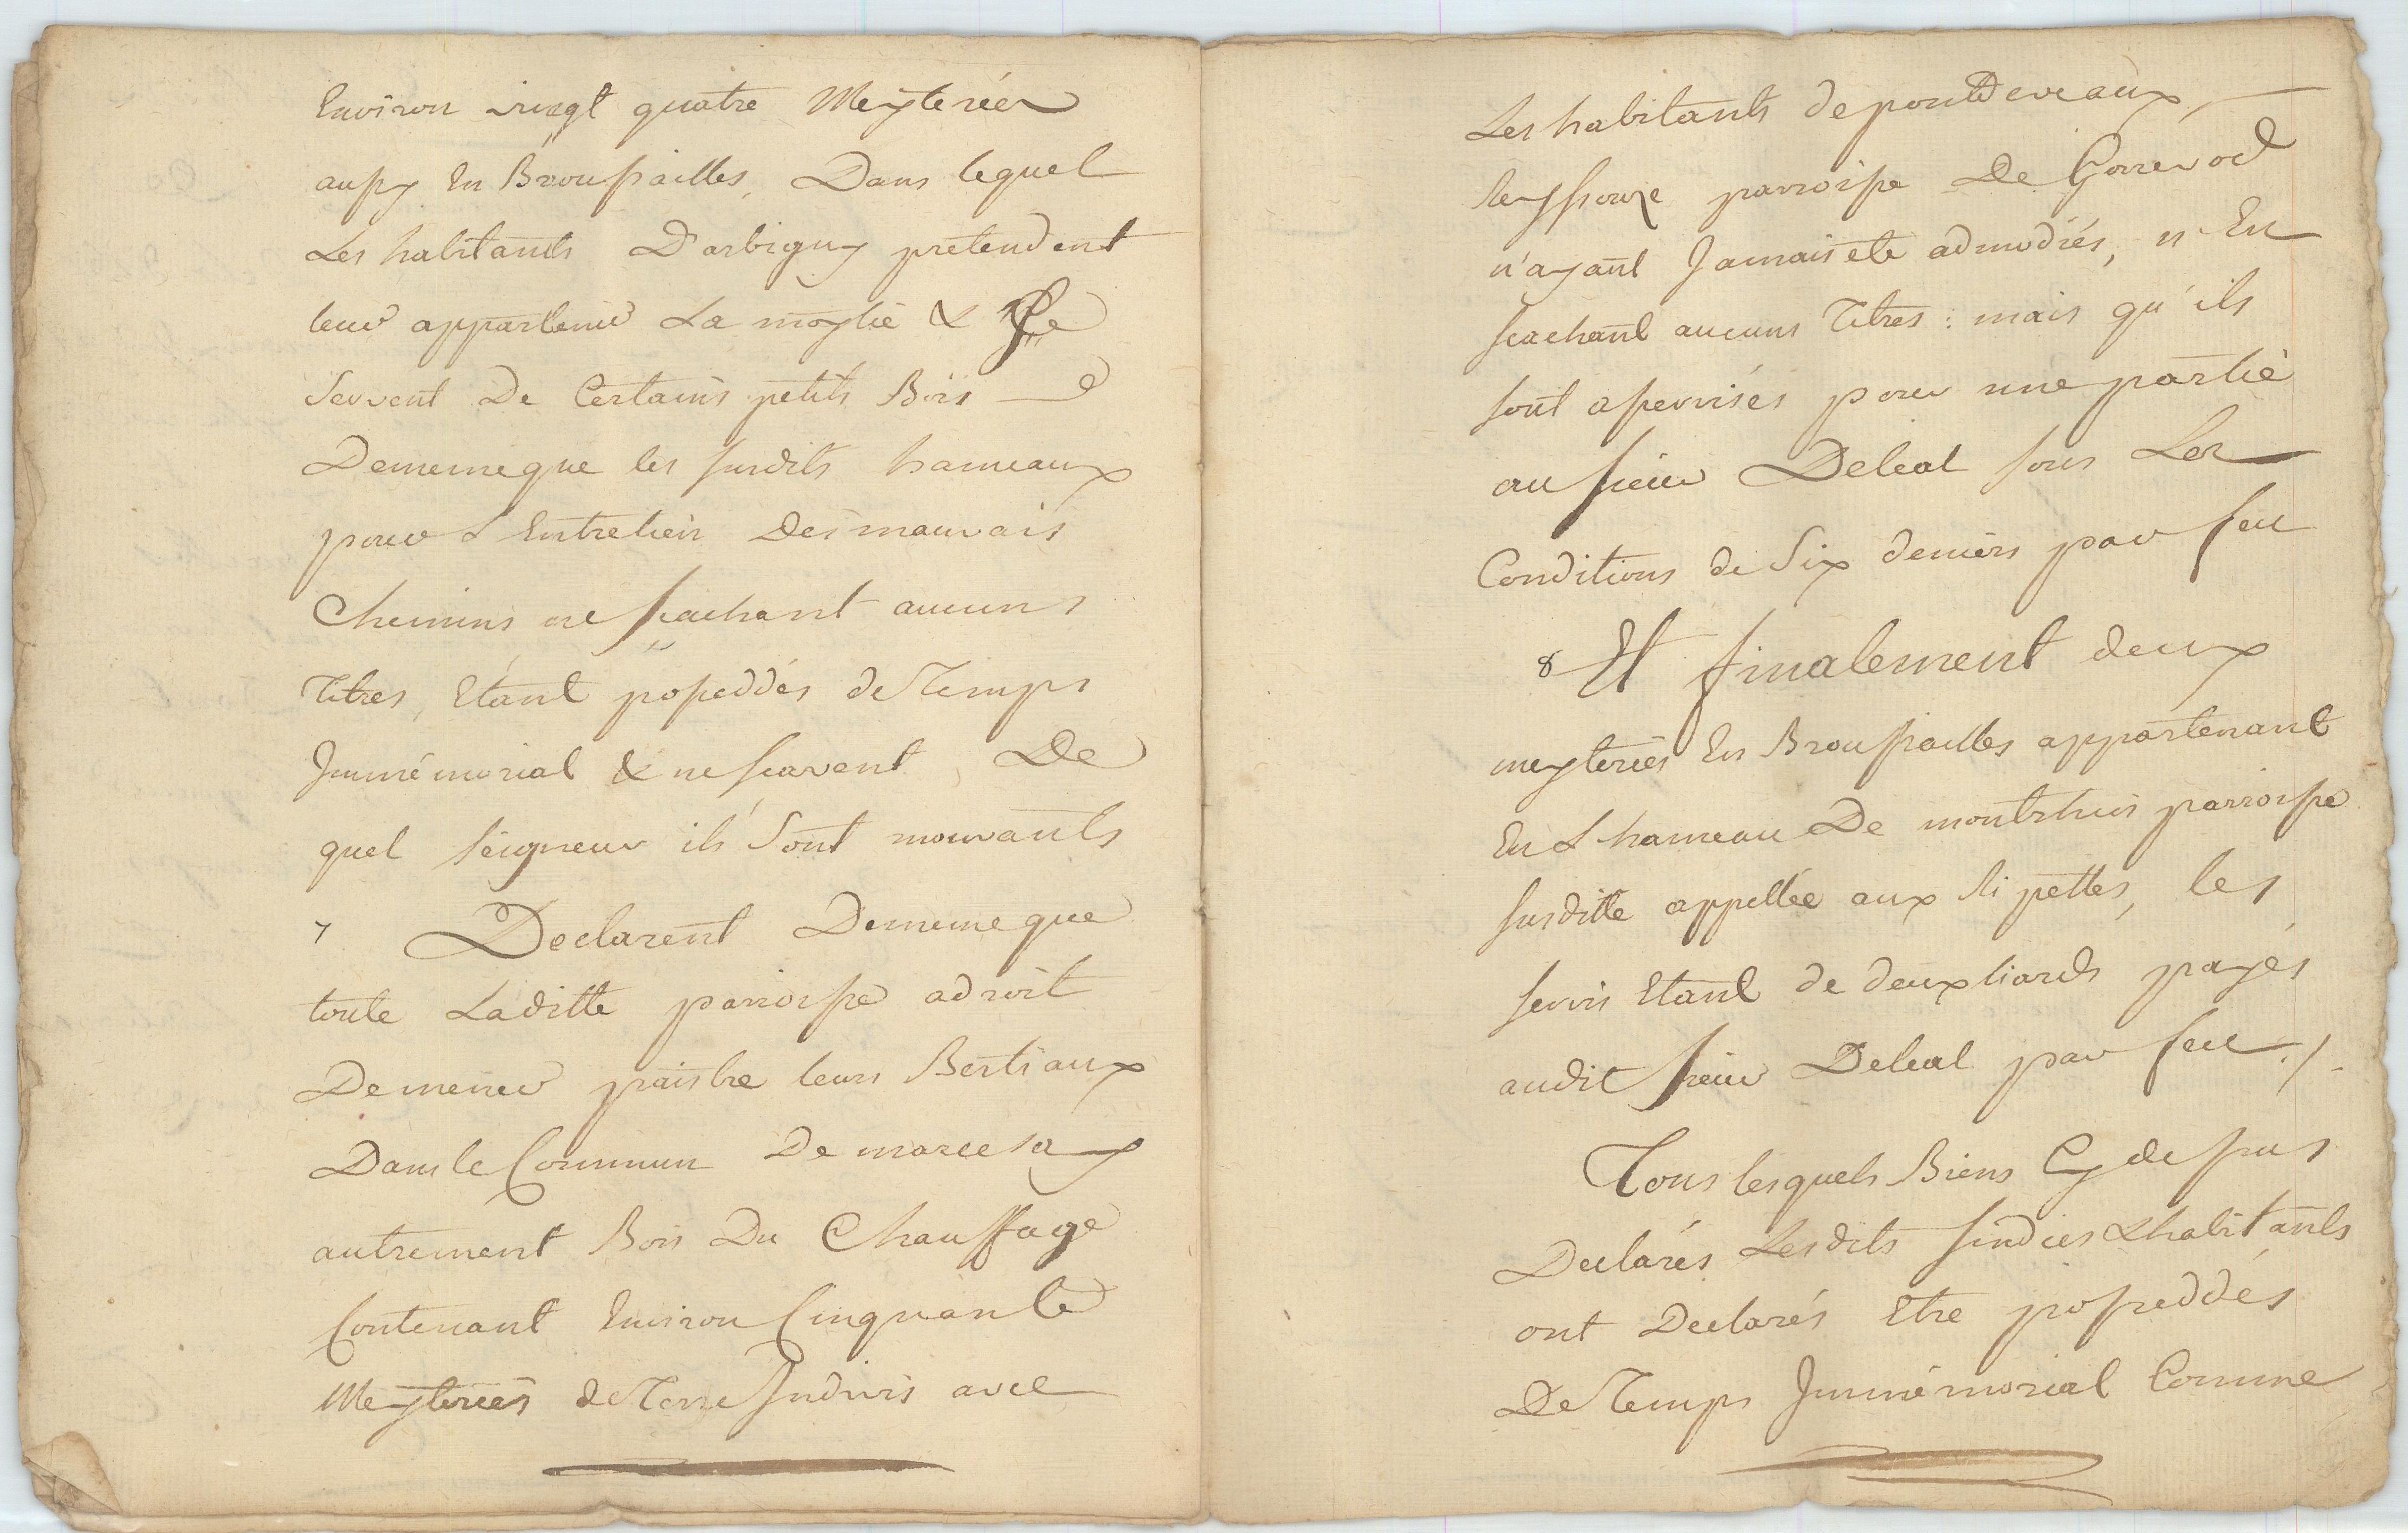 Environ vingt quatre Meyterées
aussy En Broussailles, Dans lequel
Les habitants D'arbigny pretendent
leur appartenir La moytié & Se
Servent De Certains petits Bois
Dememeque les susdits hameaux
pour L'Entretien Des mauvais
Chemins ne scachant aucuns
Titres, Etant posseddés de Temps
Immémorial & ne scavent De
quel seigneur ils Sont mouvants
7 Declarent Dememeque
toute Laditte parroisse adroit
Demener paistre leurs Bestiaux
Dans le Commun De
autrement Bois Du Chauffage
Contenant Environ Cinquante
Meyterées de Terre Indivis avec
Les habitants de pontdeveaux,
Reyssouze parroisse De Gorrevod
n'ayant Jamais eté admodiés, n'En
scachant aucuns Titres : mais qu'ils
sont asservisés pour une partie
au sieur Deleal sous Les
Conditions de Six deniers par feu
8 Et finalement deux
meyterées En Broussailles appartenant
En L'hameau De parroisse
susditte appellée aux Ripettes, les
servis Etant de deux liards payés
audit sieur Deleal par feu ./.
Tous lesquels Biens Cy dessus
Declarés Lesdits sindics & habitants
ont Declarés Etre posseddés
De Temps Immémorial Comme